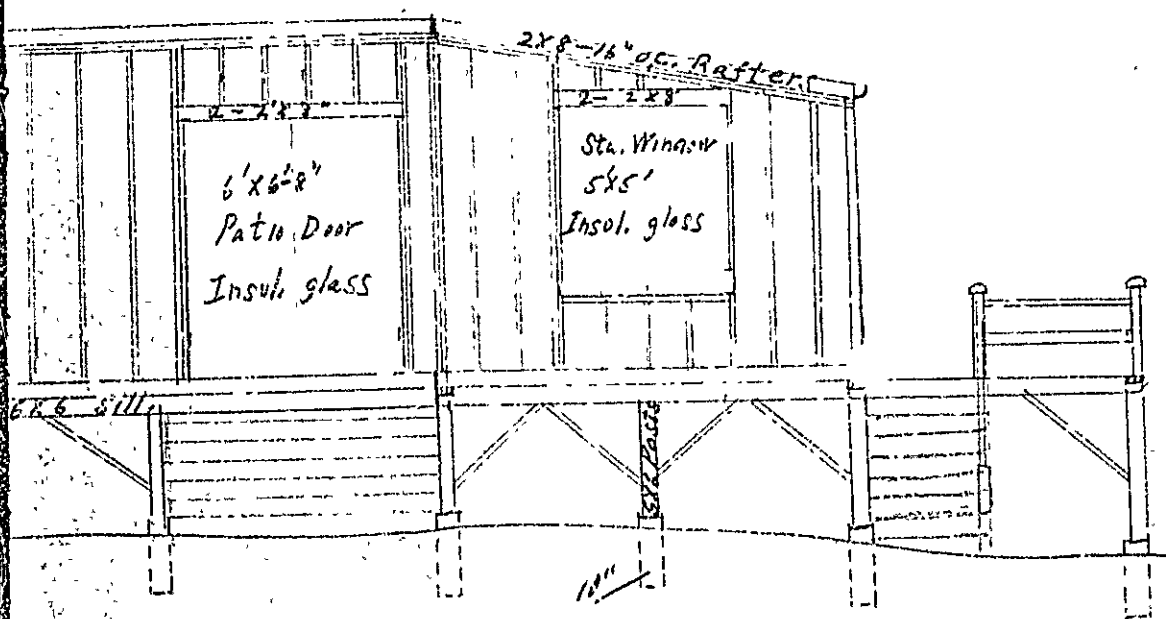 2X8-16" O.C. Rafters
2-2"X8"
2-2X8
6'X6'-8"
Patio Door
Insul. glass
Sta. Window
5'X5'
Insul. glass
6X6 Sill
6X6 Posts
10"